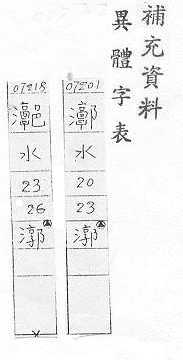 補充資料
異體字表
07201
水
20
23
漷
07218
水
23
26
漷